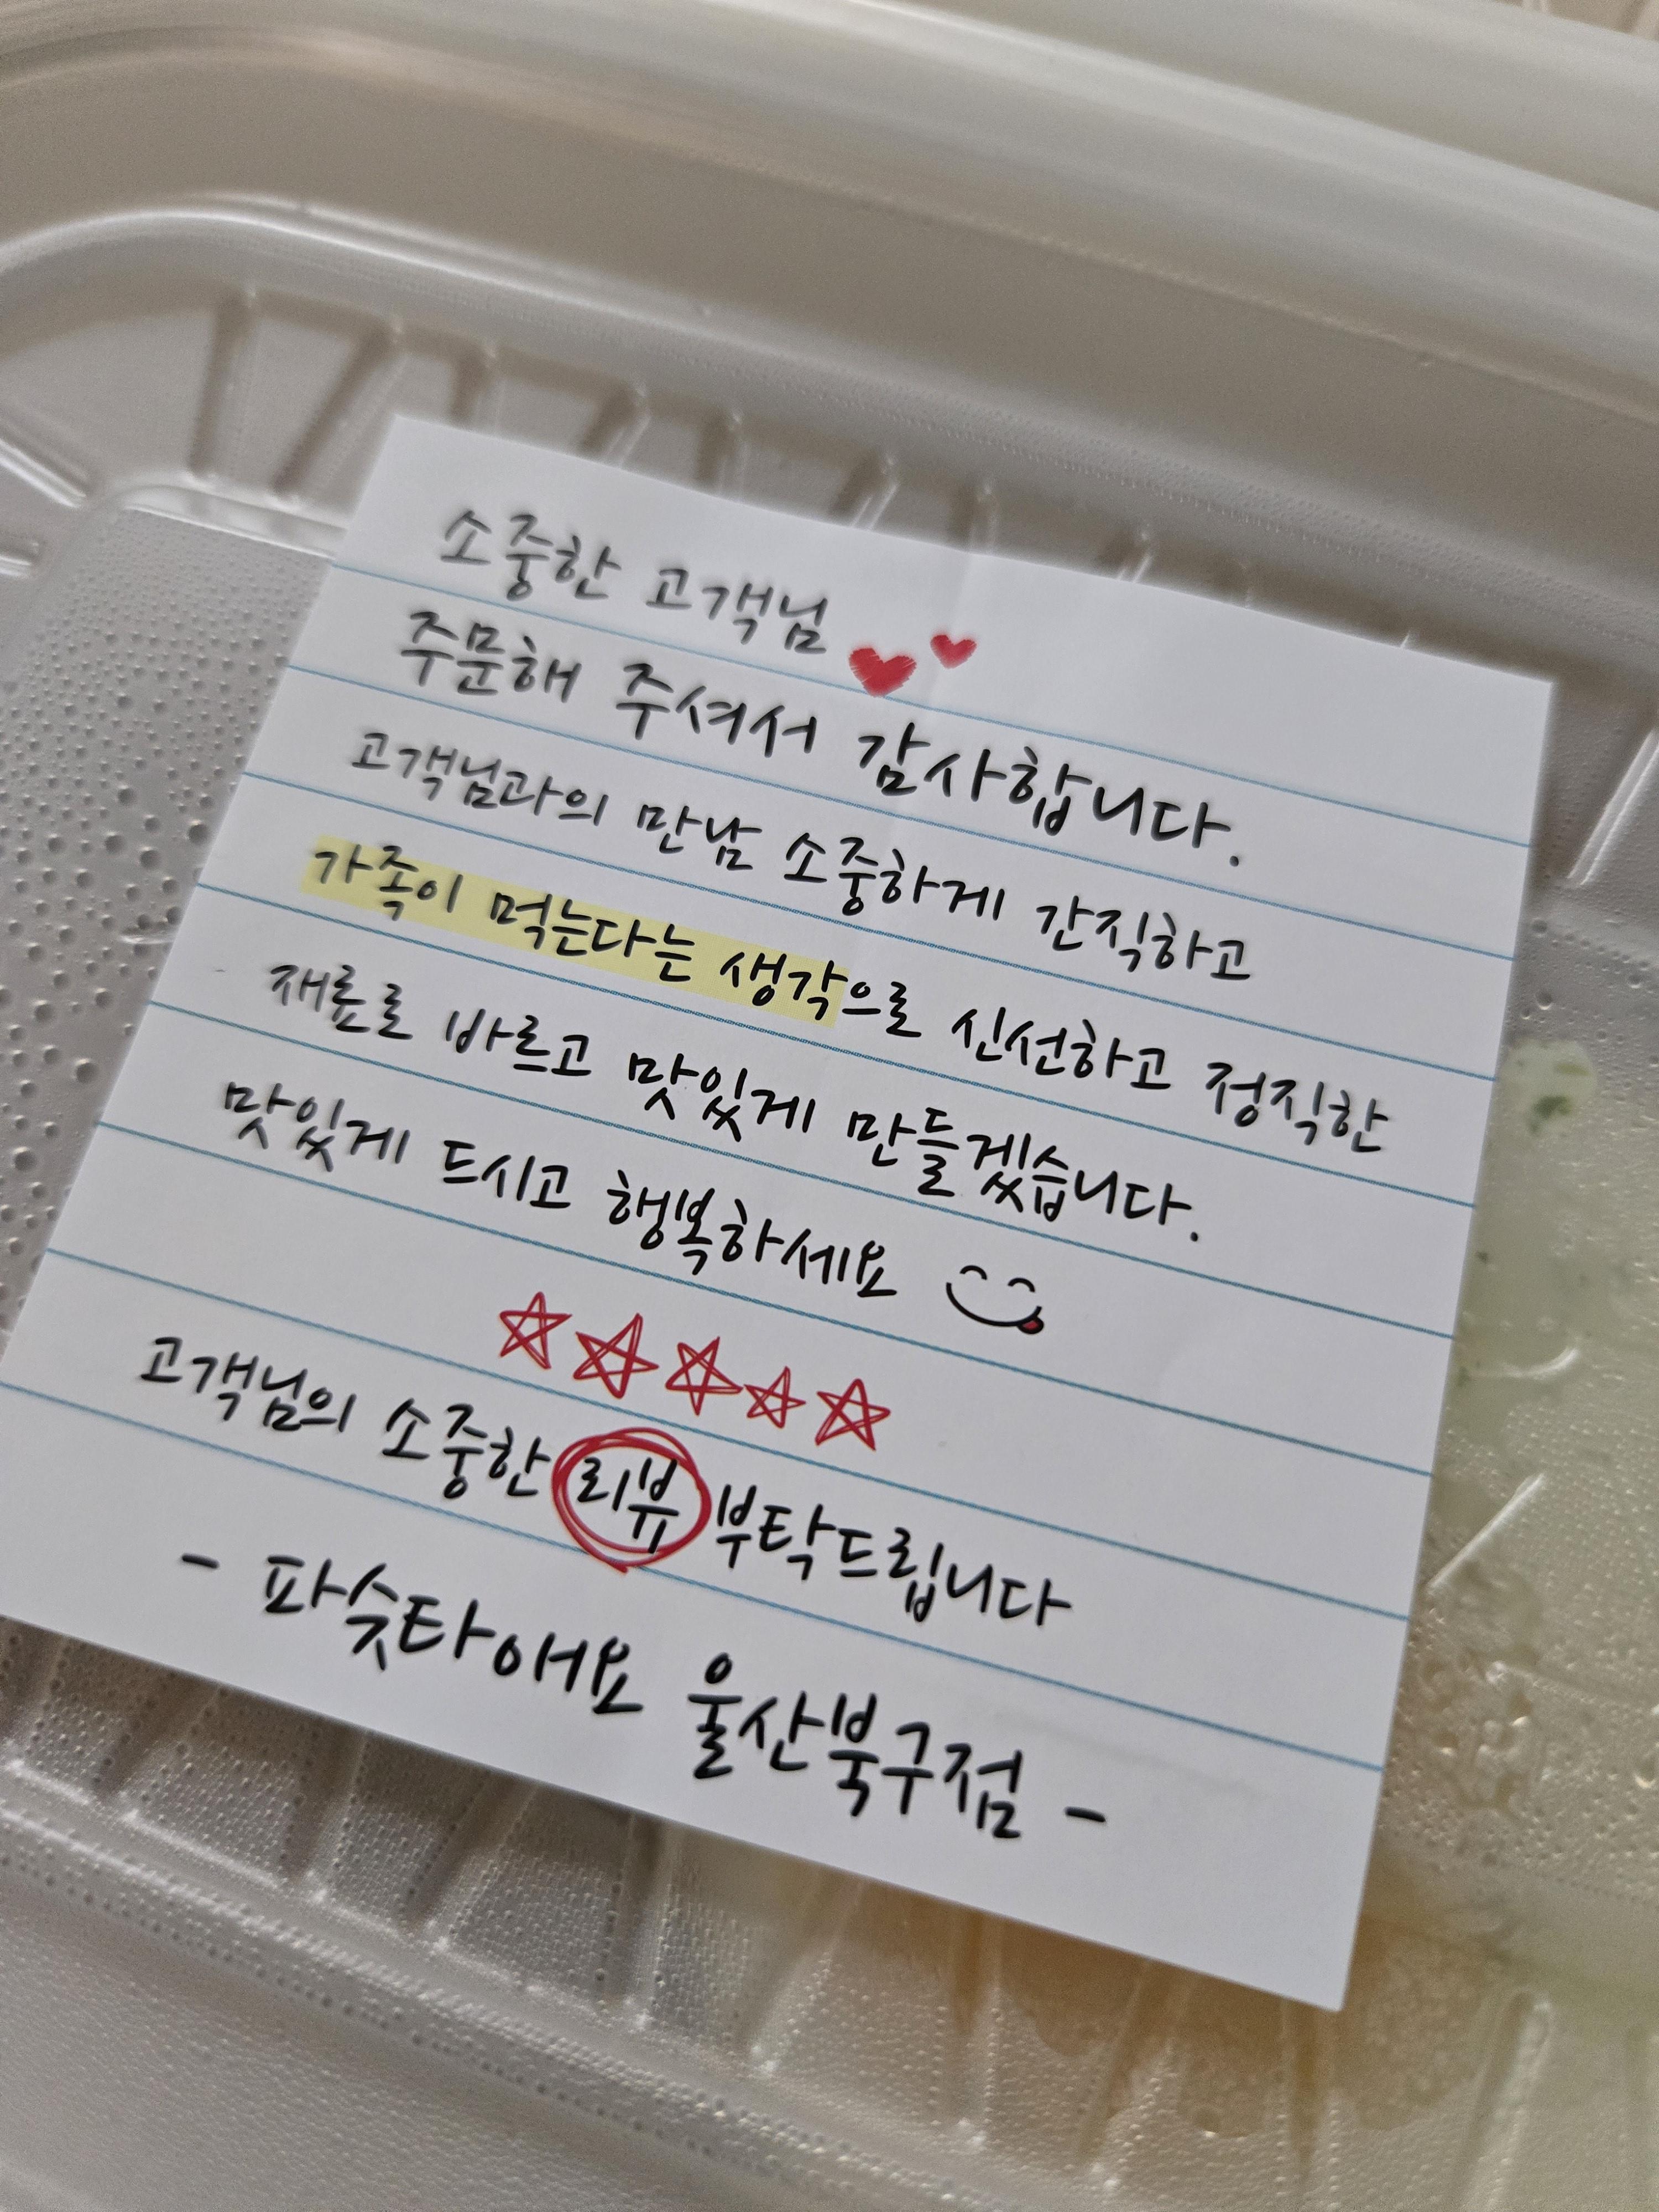 소중한 고객님
주문해 주셔서 감사합니다.
고객님과의 만남 소중하게 간직하고
가족이 먹는다는 생각으로 신선하고 정직한
재료로 바르고 맛있게 만들겠습니다.
맛있게 드시고 행복하세요
고객님의 소중한 리뷰 부탁드립니다
- 파슷타애요 울산북구점 -